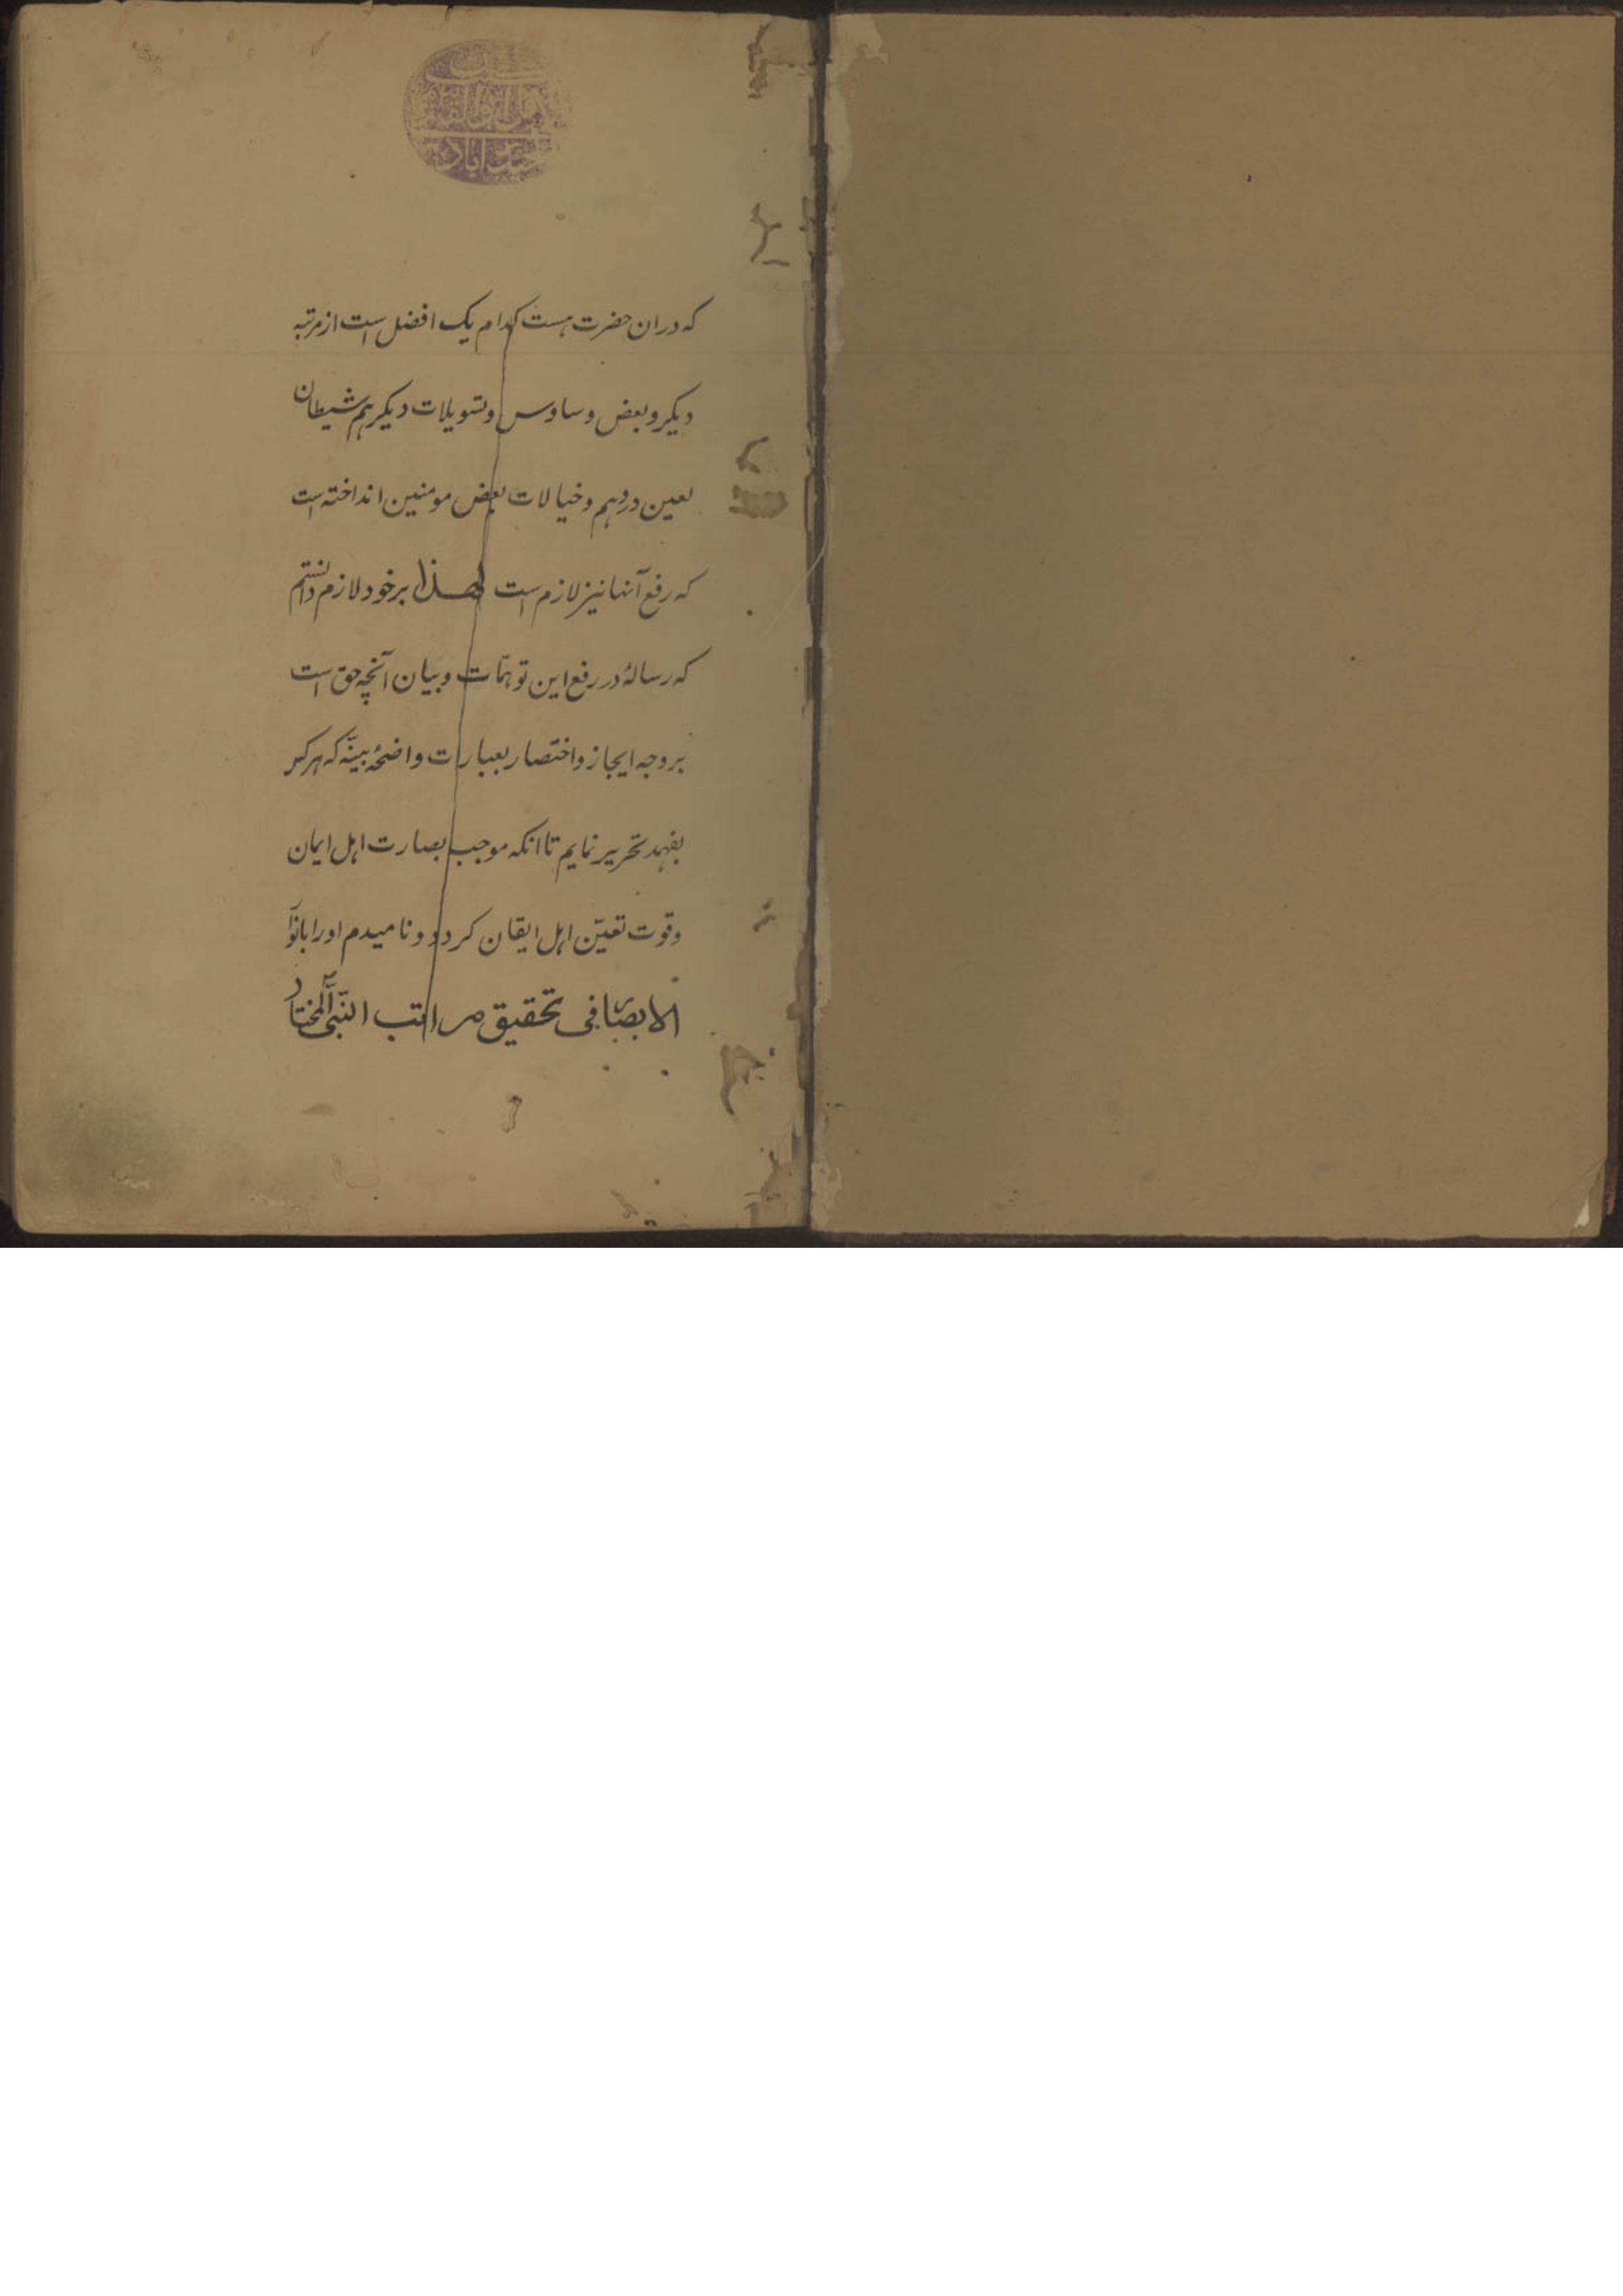 که دران حضرت هست کدام یک افضل است از مرتبه
دیکر و بعض وساوس و تسویلات دیکر هم شیطان
لعین در وهم و خیالات بعض مومنین انداخته است
که رفع آنها نیز لازم است لهذا بر خود لازم دانستم
که رسالهٔ در رفع این توهمّات و بیان آنچه حق است
بر وجه ایجاز و اختصار بعبارات واضحهٔ بینّه که هر کس
بفهمد تحریر نمایم تا انکه موجب بصارت اهل ایمان
وقوت تعیّن اهل ایقان کردد و نامیدم او را بانوار
الابصار فی تحقیق مراتب النّبی المختار